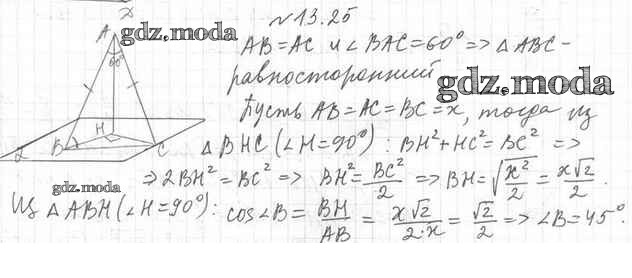 №13.25
A
60°
H
B
C
α
gdz.moda
AB=AC и ∠BAC=60° => △ABC-
равносторонний
gdz.moda
Пусть AB=AC=BC=x, тогда из
△BHC (∠H=90°): BH²+HC²=BC² =>
=> 2BH²=BC² => BH²=BC²/2 => BH=√(x²/2)=x√2/2.
gdz.moda
Из △ABH(∠H=90°): cos∠B=BH/AB=x√2/2·x=√2/2=>∠B=45°.